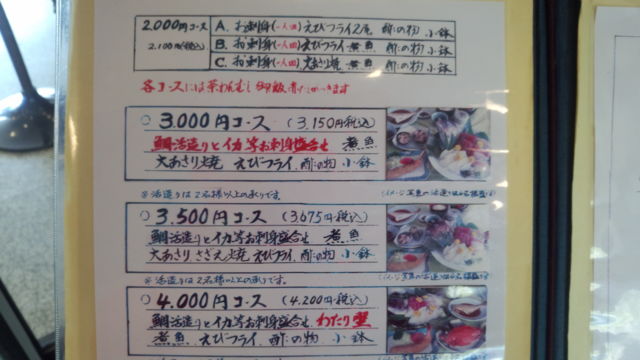 2.000円コース
2.100円(税込)
A. お刺身(一人皿)えびフライ2尾 酢の物 小鉢
B. お刺身(一人皿)えびフライ 煮魚 酢の物 小鉢
C. お刺身(一人皿)大あさり焼 煮魚 酢の物 小鉢
各コースには茶わんむし 御飯 つきます
○ 3.000円コース (3.150円税込)
鯛活造りとイカ等お刺身盛合せ 煮魚
大あさり焼 えびフライ 酢の物 小鉢
※活造りは2名様以上の承りです。
○ 3.500円コース (3.675円税込)
鯛活造りとイカ等お刺身盛合せ 煮魚
大あさり さざえ焼 えびフライ 酢の物 小鉢
※活造りは2名様以上の承りです。
○ 4.000円コース (4.200円税込)
鯛活造りとイカ等お刺身盛合せ わたり蟹
煮魚 えびフライ 酢の物 小鉢